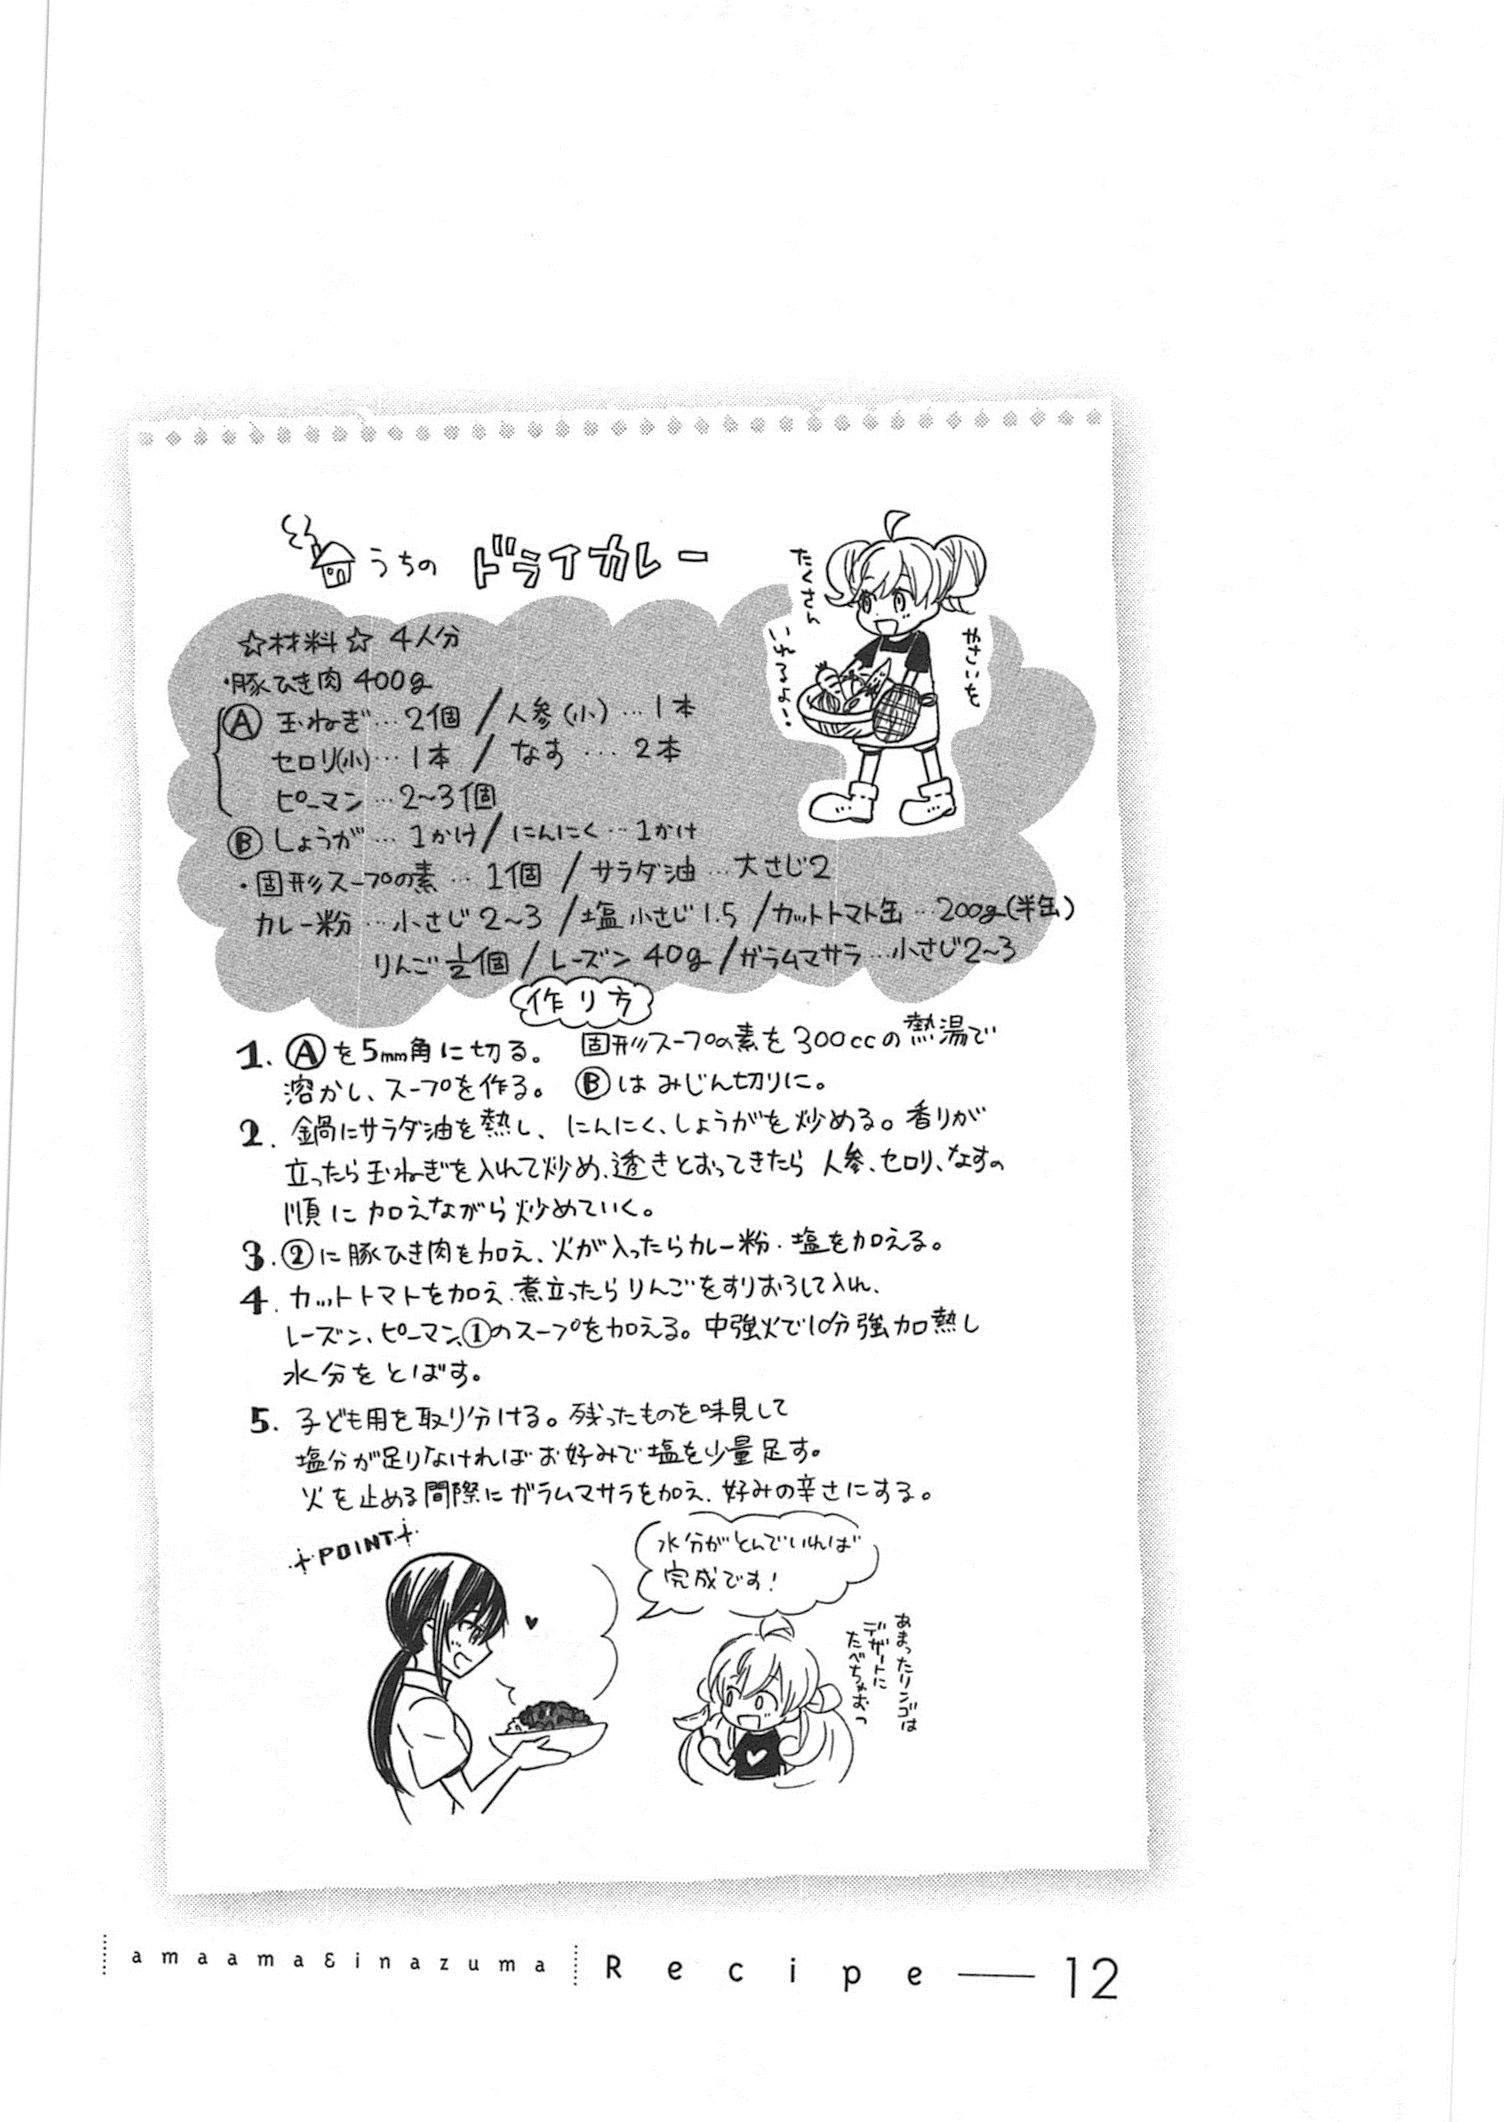 うちの ドライカレー
やさいを
たくさん
いれるよー!
☆材料☆ 4人分
・豚ひき肉 400g
Ⓐ 玉ねぎ…2個 / 人参(小)…1本
セロリ(小)…1本 / なす…2本
ピーマン…2~3個
Ⓑ しょうが…1かけ / にんにく…1かけ
・固形スープの素…1個 / サラダ油…大さじ2
カレー粉…小さじ2~3 / 塩 小さじ1.5 / カットトマト缶…200g(半缶)
りんご 1/2個 / レーズン 40g / ガラムマサラ…小さじ2~3
作り方
1. Ⓐを5mm角に切る。 固形スープの素を300ccの熱湯で
溶かし、スープを作る。 Ⓑはみじん切りに。
2. 鍋にサラダ油を熱し、にんにく、しょうがを炒める。香りが
立ったら玉ねぎを入れて炒め、透きとおってきたら 人参、セロリ、なすの
順に加えながら炒めていく。
3. ②に豚ひき肉を加え、火が入ったらカレー粉・塩を加える。
4. カットトマトを加え、煮立ったらりんごをすりおろして入れ、
レーズン、ピーマン、①のスープを加える。中強火で10分強加熱し
水分をとばす。
5. 子ども用を取り分ける。残ったものを味見して
塩分が足りなければお好みで塩を少量足す。
火を止める間際にガラムマサラを加え、好みの辛さにする。
POINT
水分がとんでいれば
完成です!
あまったリンゴは
デザートに
たべちゃおっ
amaama&inazuma Recipe — 12